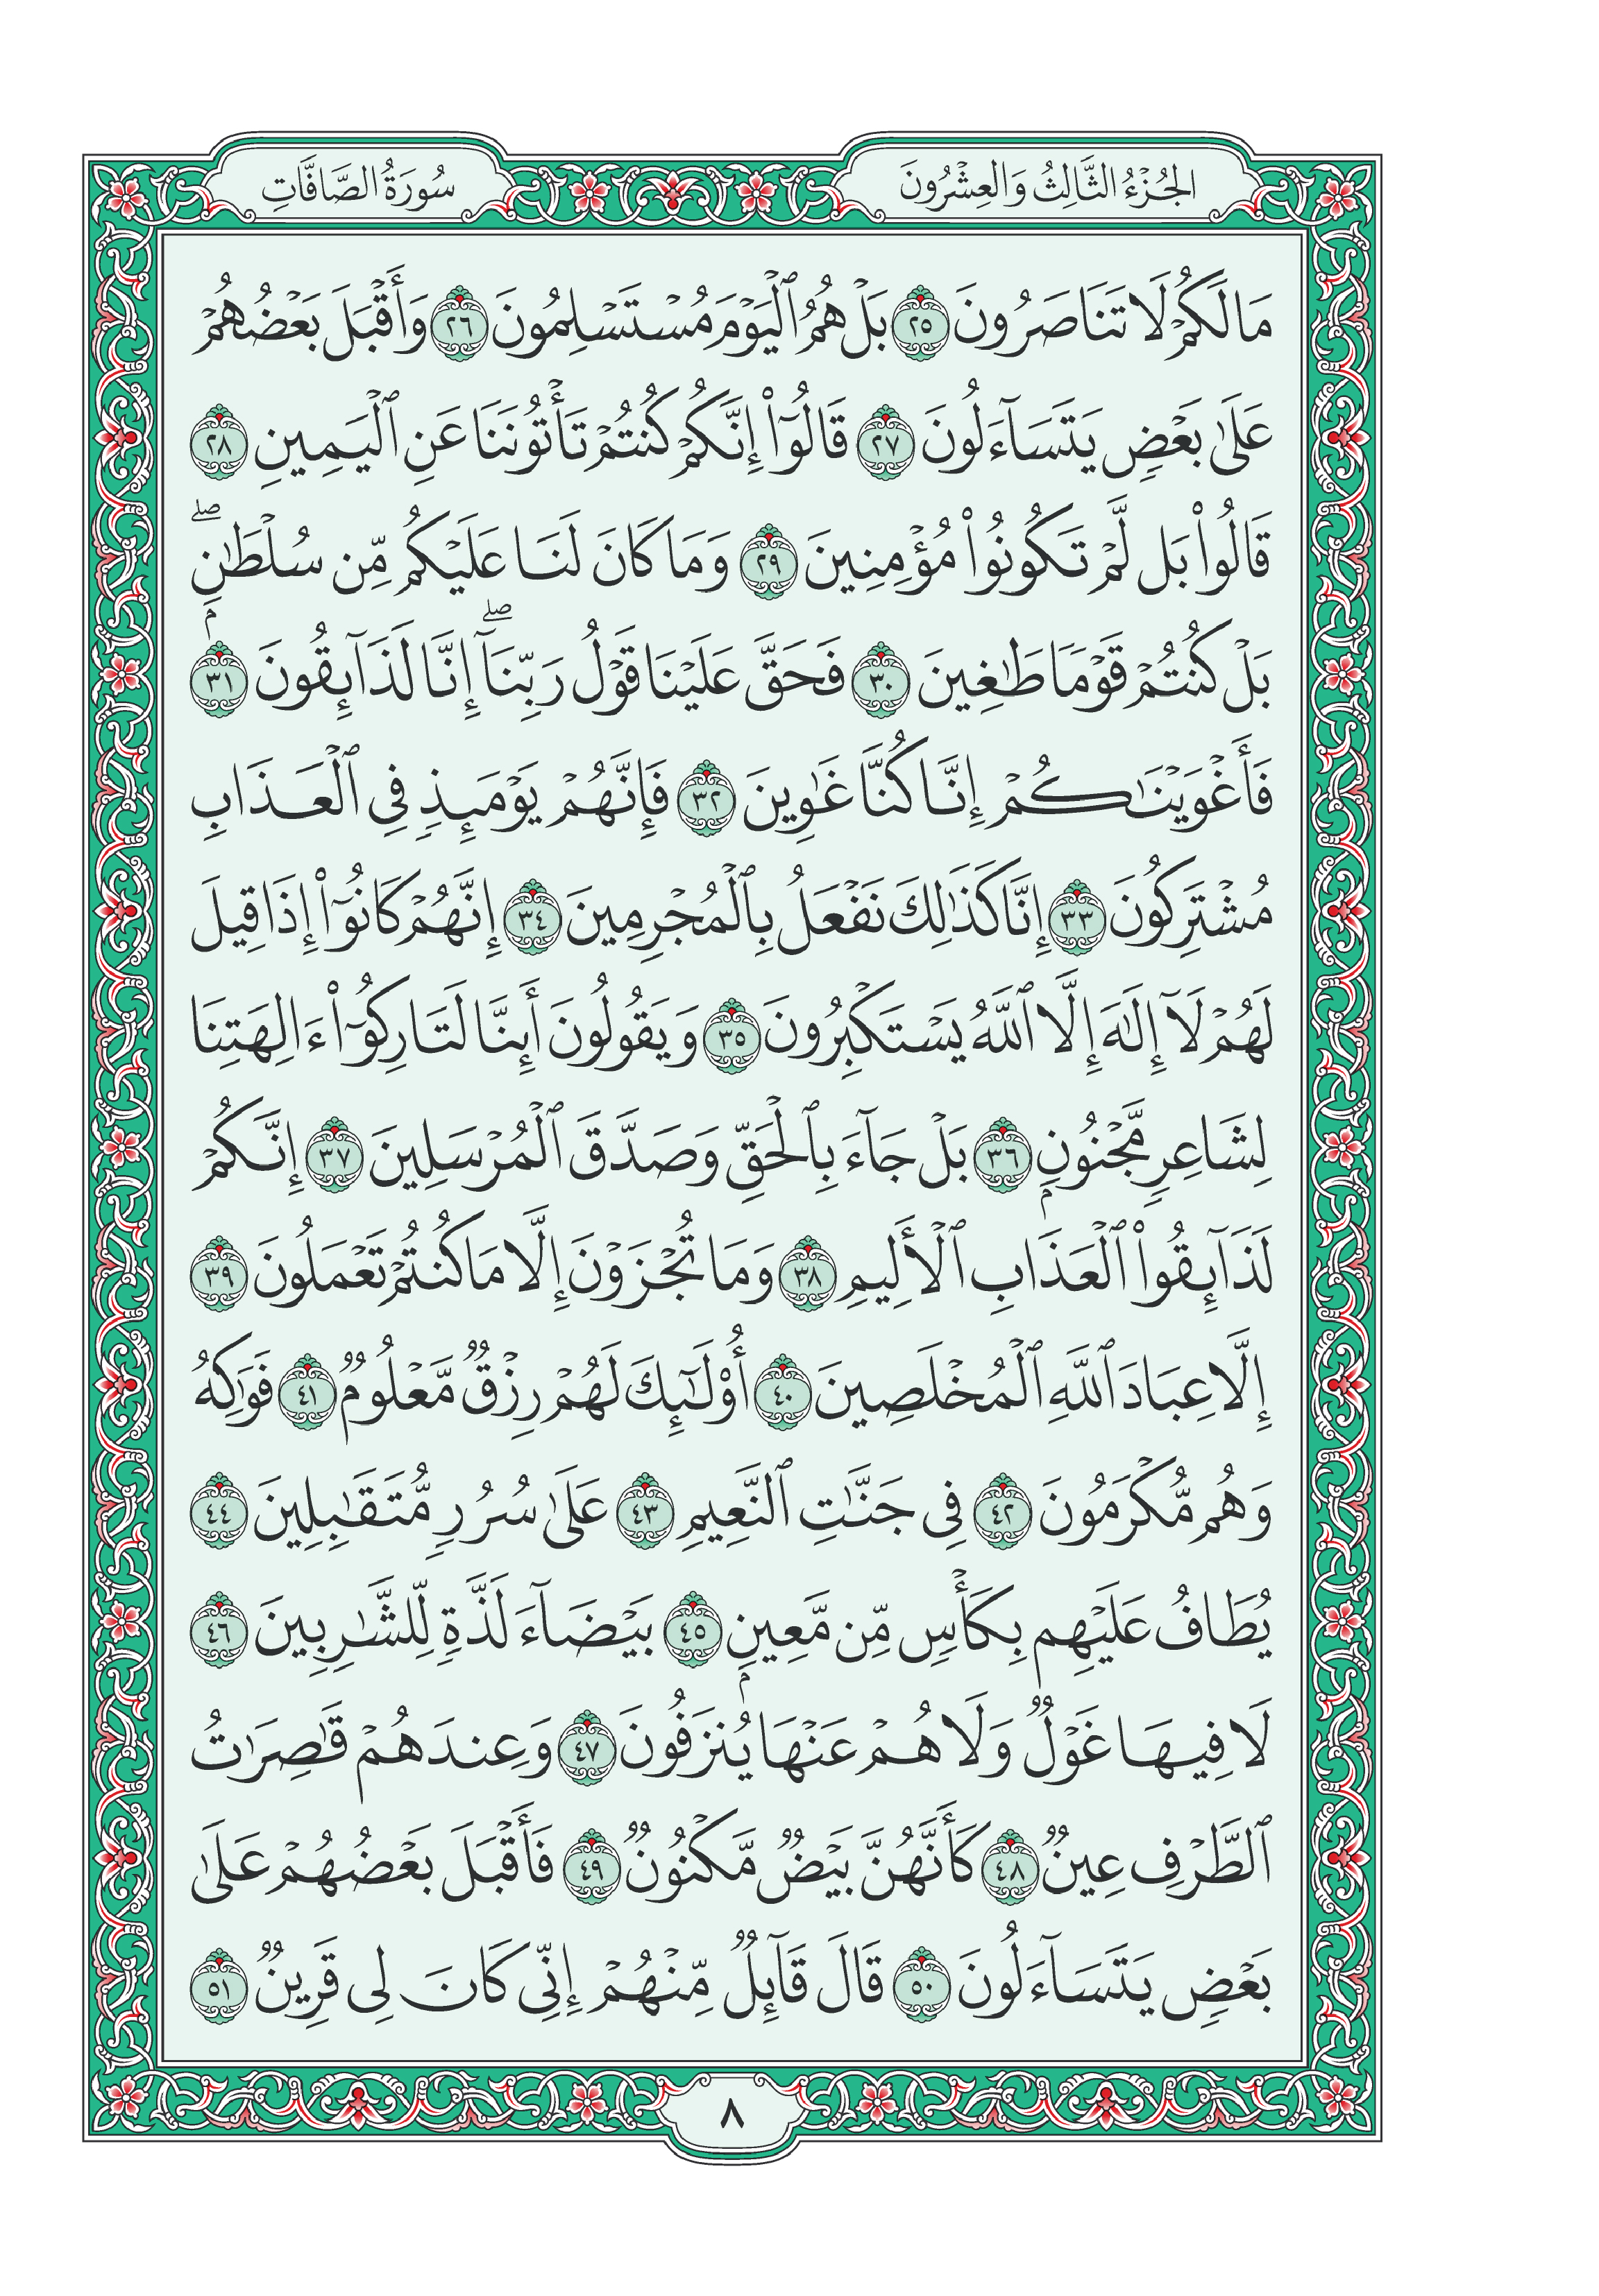 الجُزْءُ الثَّالِثُ وَالعِشْرُونَ
سُورَةُ الصَّافَّاتِ
مَا لَكُمْ لَا تَنَاصَرُونَ ٢٥ بَلْ هُمُ ٱلْيَوْمَ مُسْتَسْلِمُونَ ٢٦ وَأَقْبَلَ بَعْضُهُمْ
عَلَىٰ بَعْضٍ يَتَسَآءَلُونَ ٢٧ قَالُوٓا۟ إِنَّكُمْ كُنتُمْ تَأْتُونَنَا عَنِ ٱلْيَمِينِ ٢٨
قَالُوا۟ بَل لَّمْ تَكُونُوا۟ مُؤْمِنِينَ ٢٩ وَمَا كَانَ لَنَا عَلَيْكُم مِّن سُلْطَٰنٍۭ ۖ
بَلْ كُنتُمْ قَوْمًا طَٰغِينَ ٣٠ فَحَقَّ عَلَيْنَا قَوْلُ رَبِّنَآ ۖ إِنَّا لَذَآئِقُونَ ٣١
فَأَغْوَيْنَٰكُمْ إِنَّا كُنَّا غَٰوِينَ ٣٢ فَإِنَّهُمْ يَوْمَئِذٍ فِى ٱلْعَذَابِ
مُشْتَرِكُونَ ٣٣ إِنَّا كَذَٰلِكَ نَفْعَلُ بِٱلْمُجْرِمِينَ ٣٤ إِنَّهُمْ كَانُوٓا۟ إِذَا قِيلَ
لَهُمْ لَآ إِلَٰهَ إِلَّا ٱللَّهُ يَسْتَكْبِرُونَ ٣٥ وَيَقُولُونَ أَئِنَّا لَتَارِكُوٓا۟ ءَالِهَتِنَا
لِشَاعِرٍ مَّجْنُونٍۭ ٣٦ بَلْ جَآءَ بِٱلْحَقِّ وَصَدَّقَ ٱلْمُرْسَلِينَ ٣٧ إِنَّكُمْ
لَذَآئِقُوا۟ ٱلْعَذَابِ ٱلْأَلِيمِ ٣٨ وَمَا تُجْزَوْنَ إِلَّا مَا كُنتُمْ تَعْمَلُونَ ٣٩
إِلَّا عِبَادَ ٱللَّهِ ٱلْمُخْلَصِينَ ٤٠ أُو۟لَٰٓئِكَ لَهُمْ رِزْقٌ مَّعْلُومٌ ٤١ فَوَٰكِهُ
وَهُم مُّكْرَمُونَ ٤٢ فِى جَنَّٰتِ ٱلنَّعِيمِ ٤٣ عَلَىٰ سُرُرٍ مُّتَقَٰبِلِينَ ٤٤
يُطَافُ عَلَيْهِم بِكَأْسٍ مِّن مَّعِينٍۭ ٤٥ بَيْضَآءَ لَذَّةٍ لِّلشَّٰرِبِينَ ٤٦
لَا فِيهَا غَوْلٌ وَلَا هُمْ عَنْهَا يُنزَفُونَ ٤٧ وَعِندَهُمْ قَٰصِرَٰتُ
ٱلطَّرْفِ عِينٌ ٤٨ كَأَنَّهُنَّ بَيْضٌ مَّكْنُونٌ ٤٩ فَأَقْبَلَ بَعْضُهُمْ عَلَىٰ
بَعْضٍ يَتَسَآءَلُونَ ٥٠ قَالَ قَآئِلٌ مِّنْهُمْ إِنِّى كَانَ لِى قَرِينٌ ٥١
٨